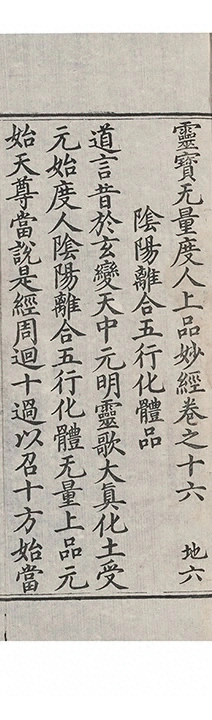 靈寶无量度人上品妙經卷之十六 地六
陰陽離合五行化體品
道言昔於玄變天中元明靈歌大眞化土受
元始度人陰陽離合五行化體无量上品元
始天尊當說是經周迴十過以召十方始當